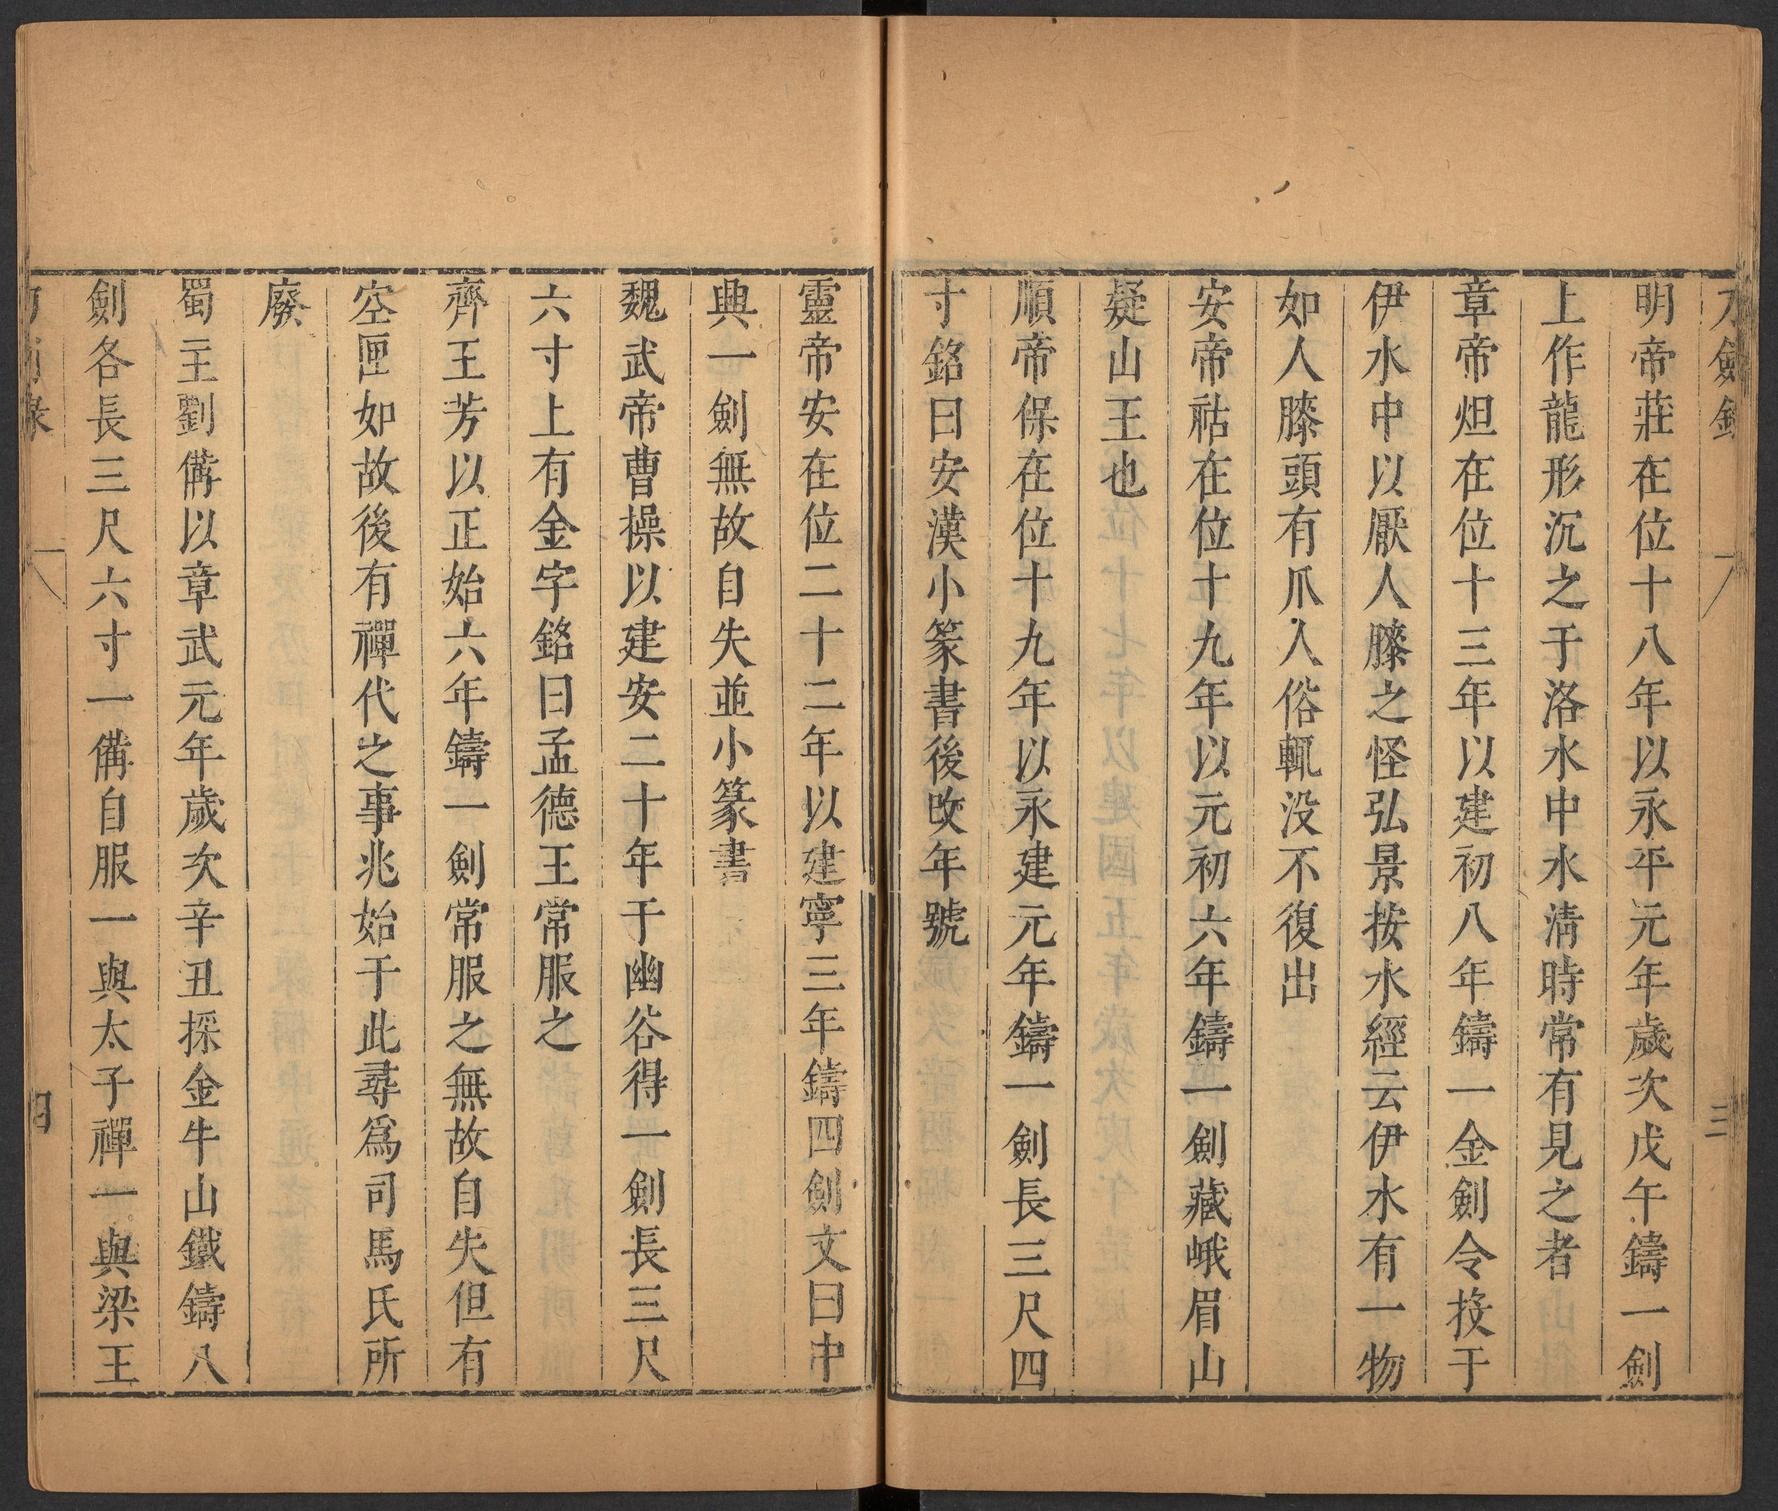 刀劍錄
三
明帝莊在位十八年以永平元年歲次戊午鑄一劍
上作龍形沉之于洛水中水清時常有見之者
章帝炟在位十三年以建初八年鑄一金劍令投于
伊水中以厭人膝之怪弘景按水經云伊水有一物
如人膝頭有爪人俗輒没不復出
安帝祜在位十九年以元初六年鑄一劍藏峨眉山
疑山王也
順帝保在位十九年以永建元年鑄一劍長三尺四
寸銘曰安漢小篆書後改年號
靈帝安在位二十二年以建寧三年鑄四劍文曰中
興一劍無故自失並小篆書
魏武帝曹操以建安二十年于幽谷得一劍長三尺
六寸上有金字銘曰孟德王常服之
齊王芳以正始六年鑄一劍常服之無故自失但有
空匣如故後有禪代之事兆始于此尋爲司馬氏所
廢
蜀主劉備以章武元年歲次辛丑採金牛山鐵鑄八
劍各長三尺六寸一備自服一與太子禪一與梁王
四